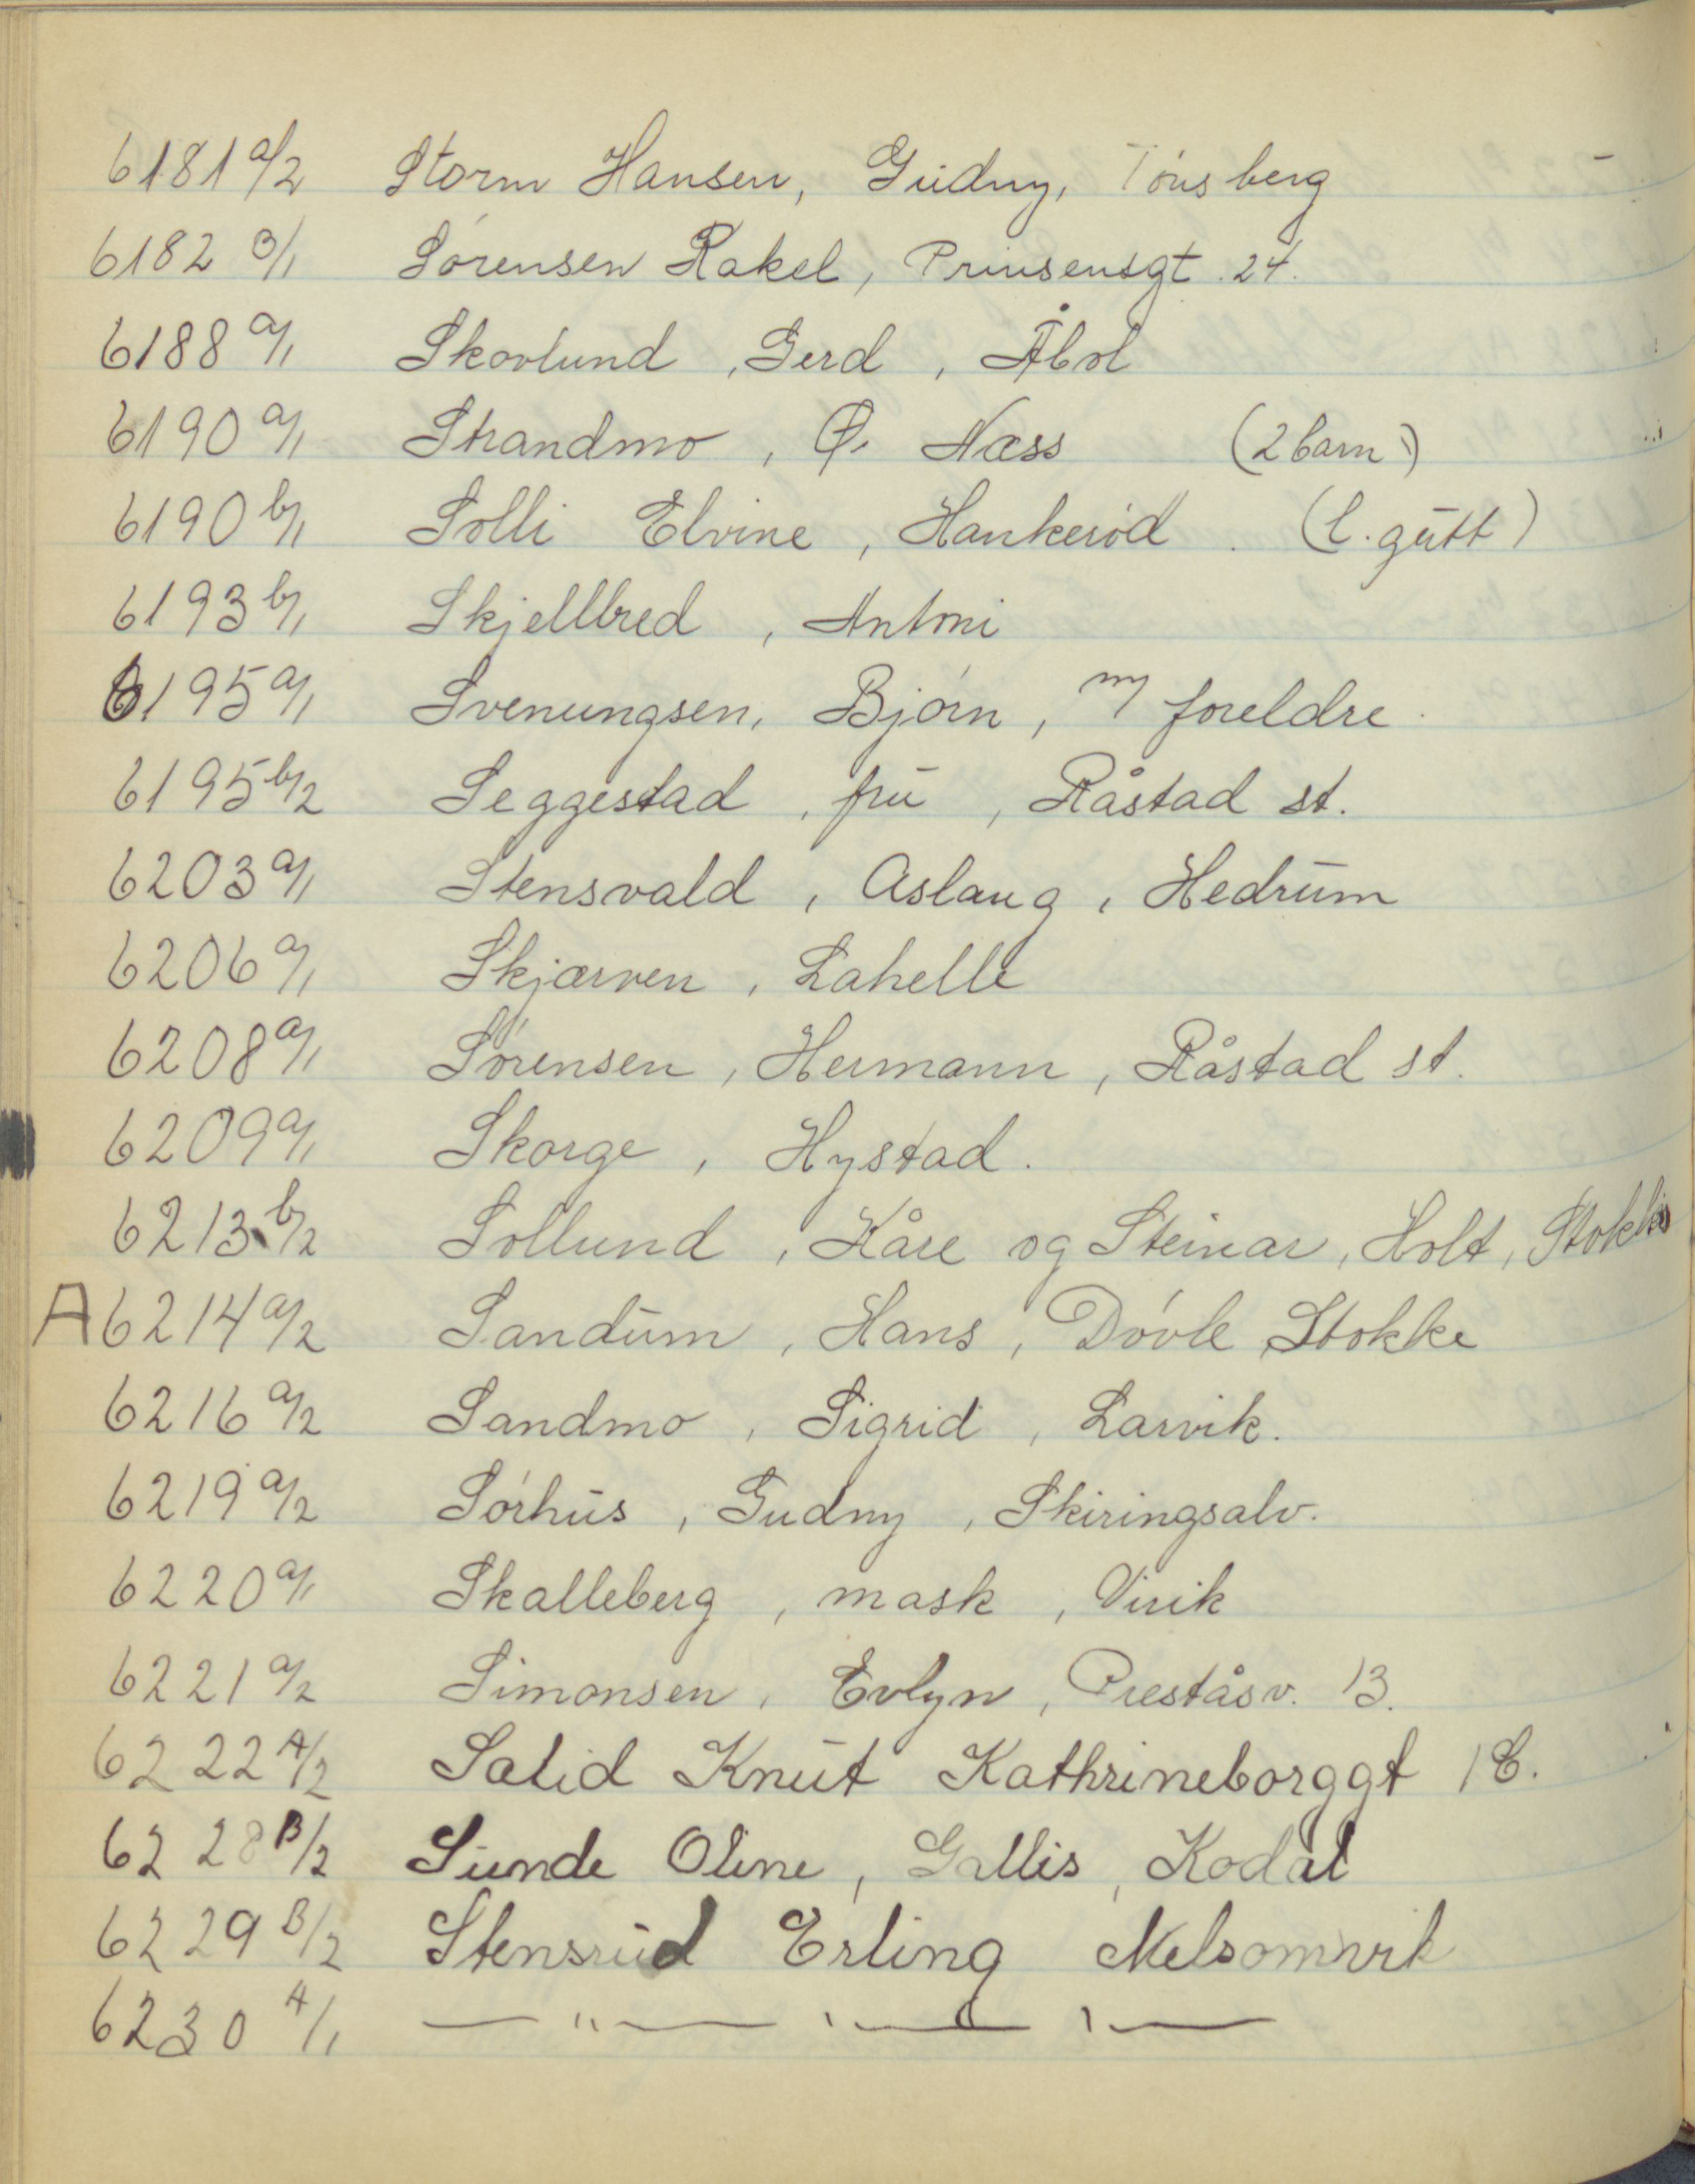 6181 a/2 Storm Hansen, Gudny, Tønsberg
6182 B/1 Sørensen Rakel, Prinsensgt. 24.
6188 a/1 Skovlund, Gerd, Åbol
6190 a/1 Strandmo, Ø. Næss (2 barn)
6190 b/1 Solli Elvine, Hankerød. (l. gutt)
6193 b/1 Skjellbred, Antoni
6195 a/1 Svenungsen, Bjørn, m/ foreldre.
6195 b/2 Seggestad, fru, Råstad st.
6203 a/1 Stensvald, Aslaug, Hedrum
6206 a/1 Skjærven, Lahelle
6208 a/1 Sørensen, Hermann, Råstad st.
6209 a/1 Skorge, Hystad.
6213 b/2 Sollund, Kåre og Steinar, Holt, Stokke
A 6214 a/2 Sandum, Hans, Døvle Stokke
6216 a/2 Sandmo, Sigrid, Larvik.
6219 a/2 Sørhus, Gudny, Skiringsalv.
6220 a/1 Skalleberg, mask, Virik
6221 a/2 Simonsen, Evlyn, Preståsv. 13.
6222 A/2 Salid Knut Kathrineborggt
6228 B/2 Sunde Oline, Gallis, Kodal
6229 B/2 Stensrud Erling Melsomvik
6230 A/1 — " — " — " —